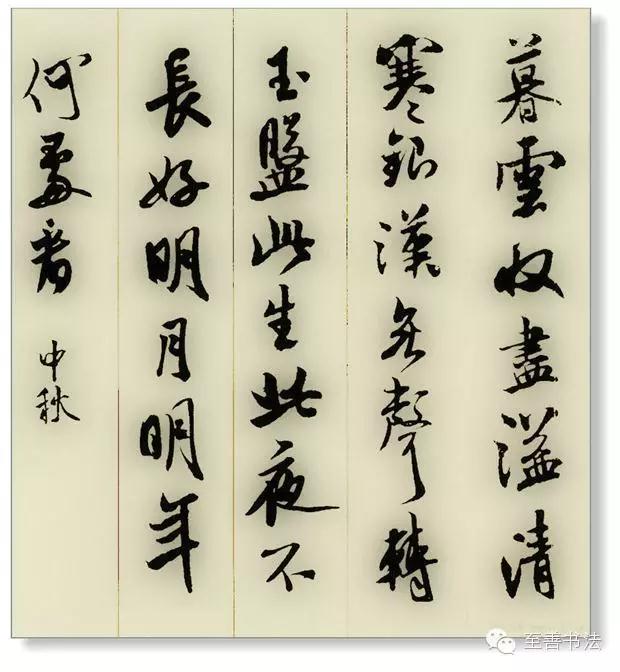 暮雲收盡溢清
寒銀漢無聲轉
玉盤此生此夜不
長好明月明年
何處看
中秋
至善书法